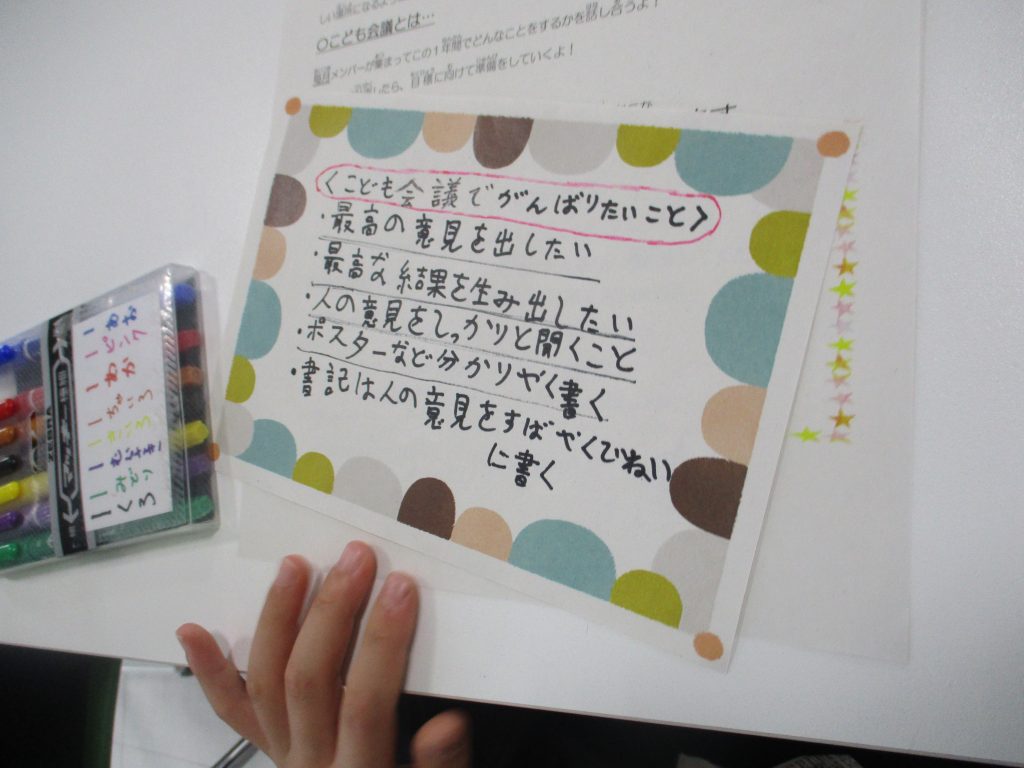 〇こども会議とは…
メンバーが集まってこの1年間でどんなことをするかを話し合うよ！
したら、目標に向けて準備をしていくよ！
＜こども会議でがんばりたいこと＞
・最高の意見を出したい
・最高な結果を生み出したい
・人の意見をしっかりと聞くこと
・ポスターなど分かりやく書く
・書記は人の意見をすばやくてねい
に書く
あお
ピンク
あか
ちゃいろ
きいろ
むらさき
みどり
くろ